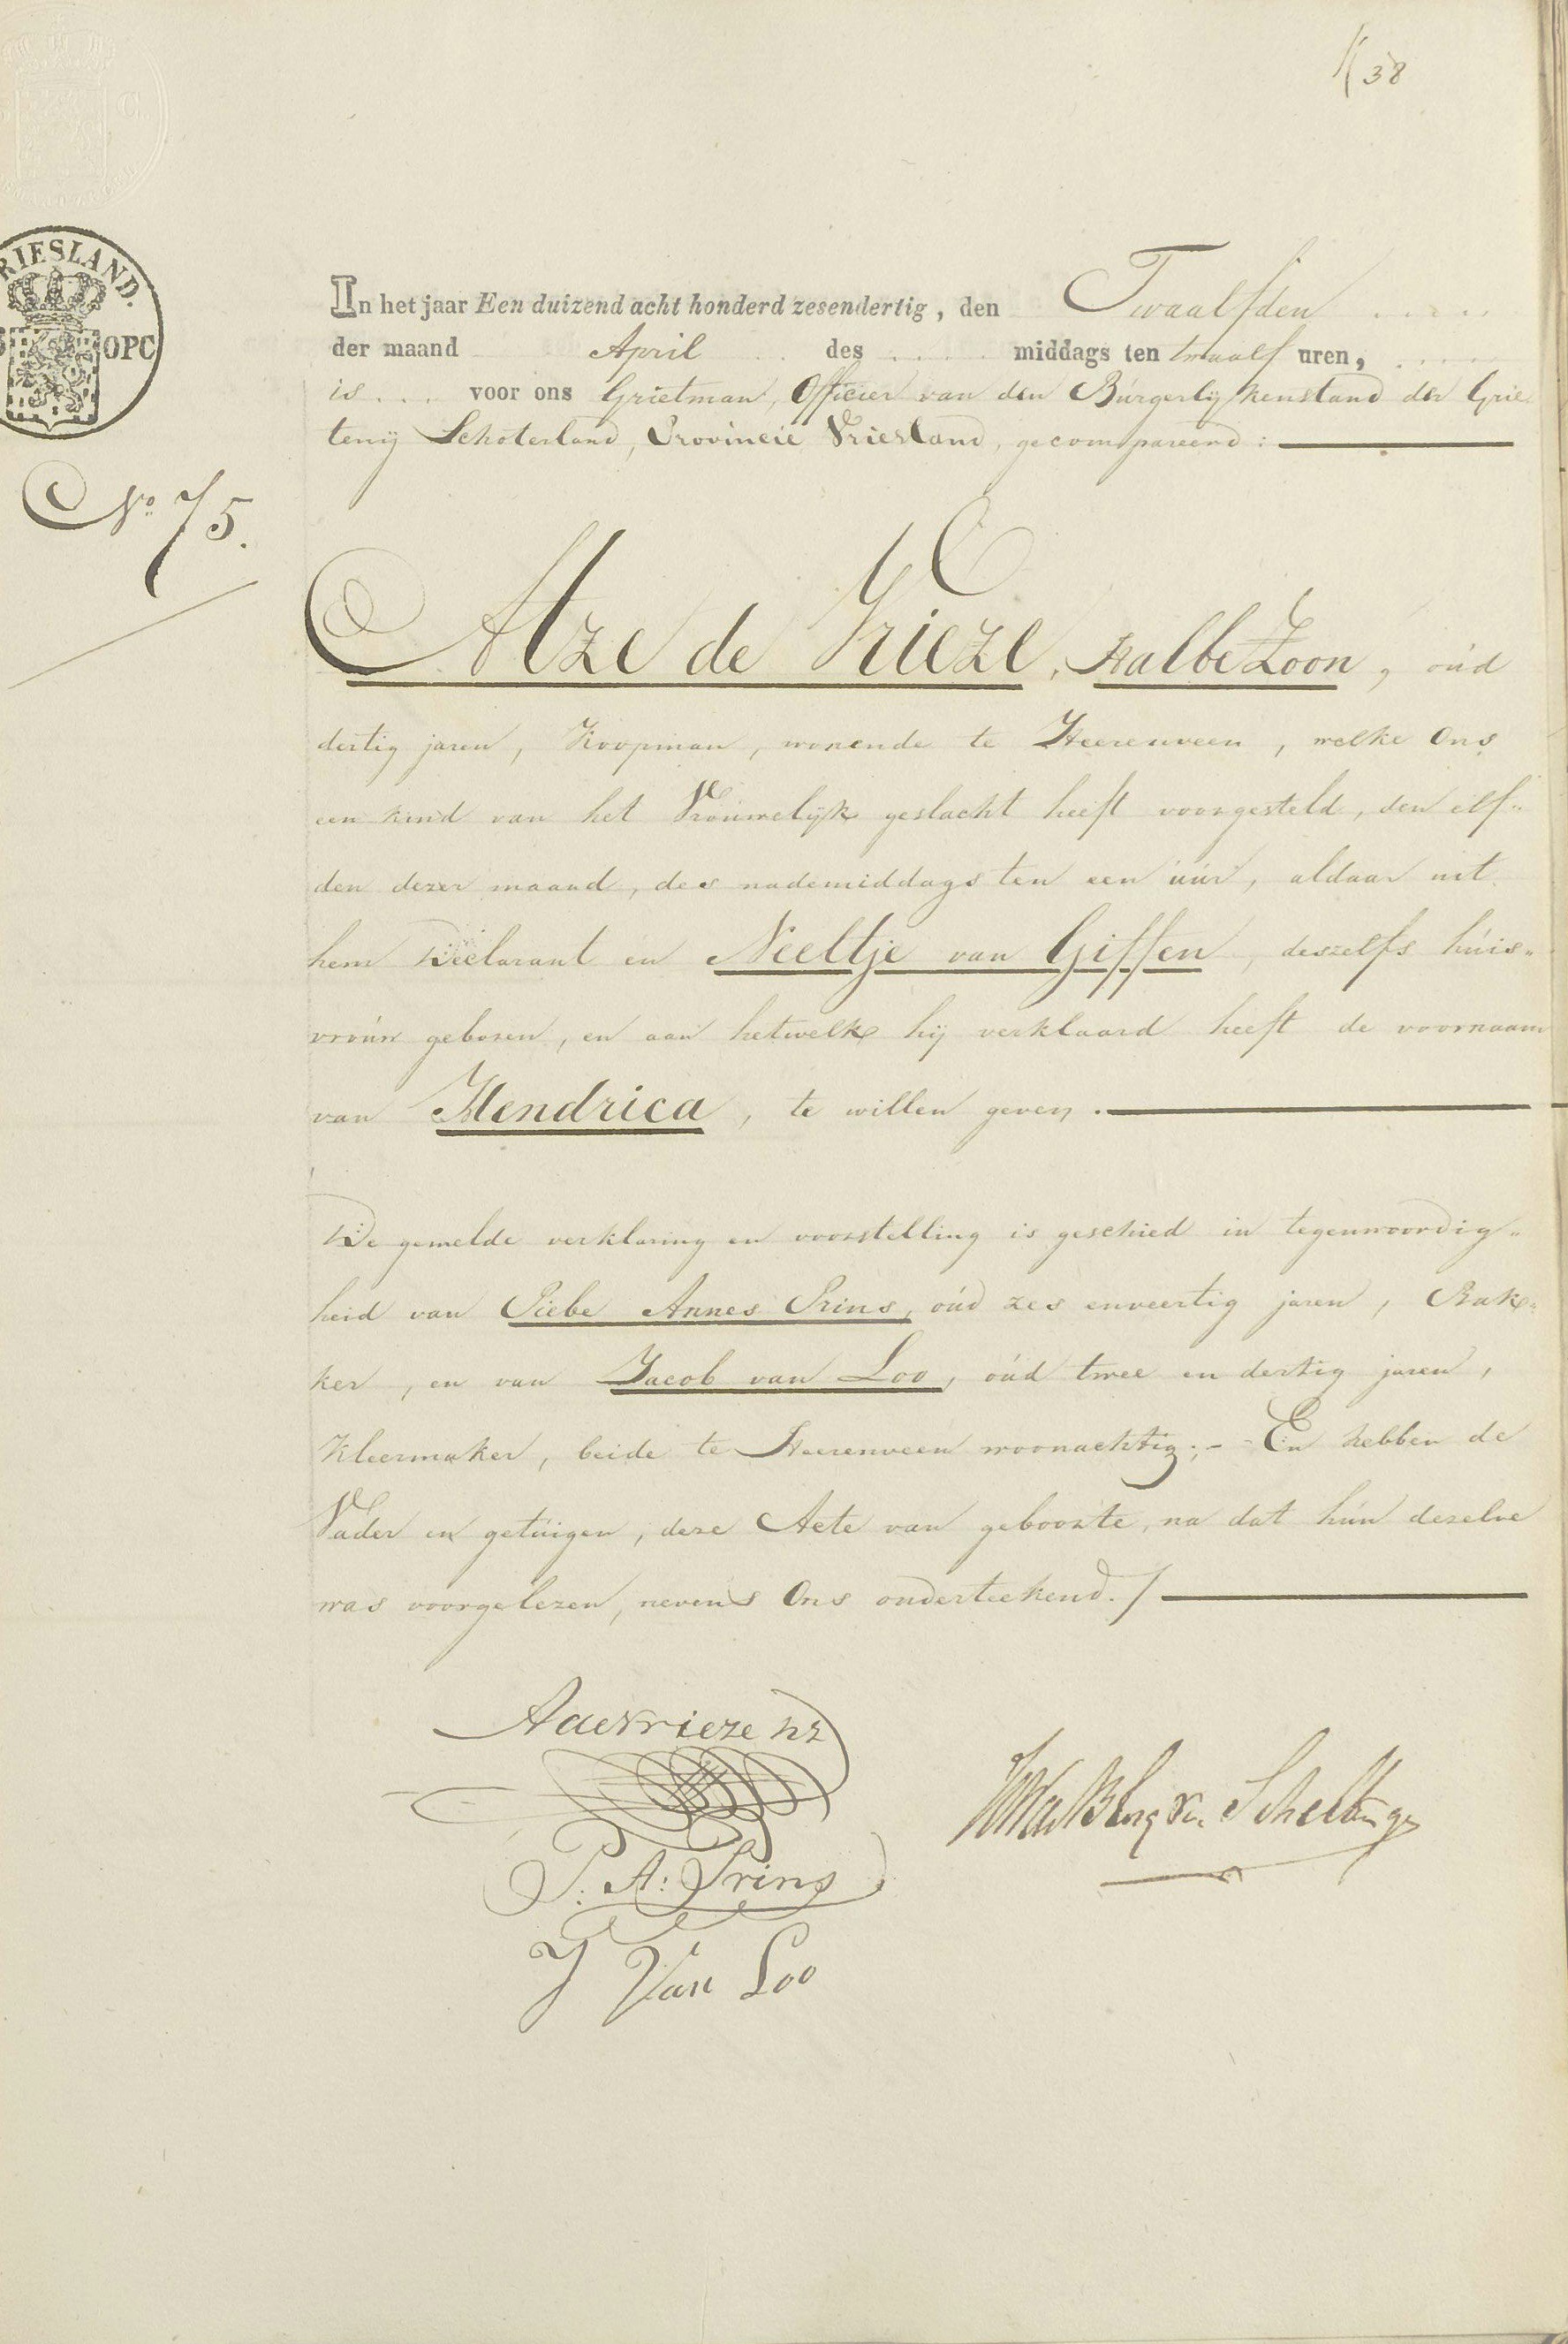 38
RIESLAND.
OPC
In het jaar Een duizend acht honderd zesendertig, den Twaalfden .....
der maand April des ..... middags ten twaalf uren, .....
is ... voor ons Grietman, Officier van den Burgerlijkenstand der Grie
tenij Schoterland, Provincie Vriesland, gecompareerd:
No. 75.
Atze de Vrieze, Halbe Zoon, oud
dertig jaren, Koopman, wonende te Heerenveen, welke Ons
een kind van het Vrouwelijk geslacht heeft voorgesteld, den elf"
den dezer maand, des nademiddags ten een uur, aldaar uit
hem Declarant en Neeltje van Giffen, deszelfs huis"
vrouw geboren, en aan hetwelk hij verklaard heeft de voornaam
van Hendrica, te willen geven.
De gemelde verklaring en voorstelling is geschied in tegenwoordig"
heid van Piebe Annes Prins, oud zes enveertig jaren, Bak"
ker, en van Jacob van Loo, oud twee en dertig jaren,
Kleermaker, beide te Heerenveen woonachtig; - En hebben de
Vader en getuigen, deze Acte van geboorte, na dat hun dezelve
was voorgelezen, nevens Ons onderteekend./
A de Vrieze hz
P. A: Prins
J Van Loo
Schelting